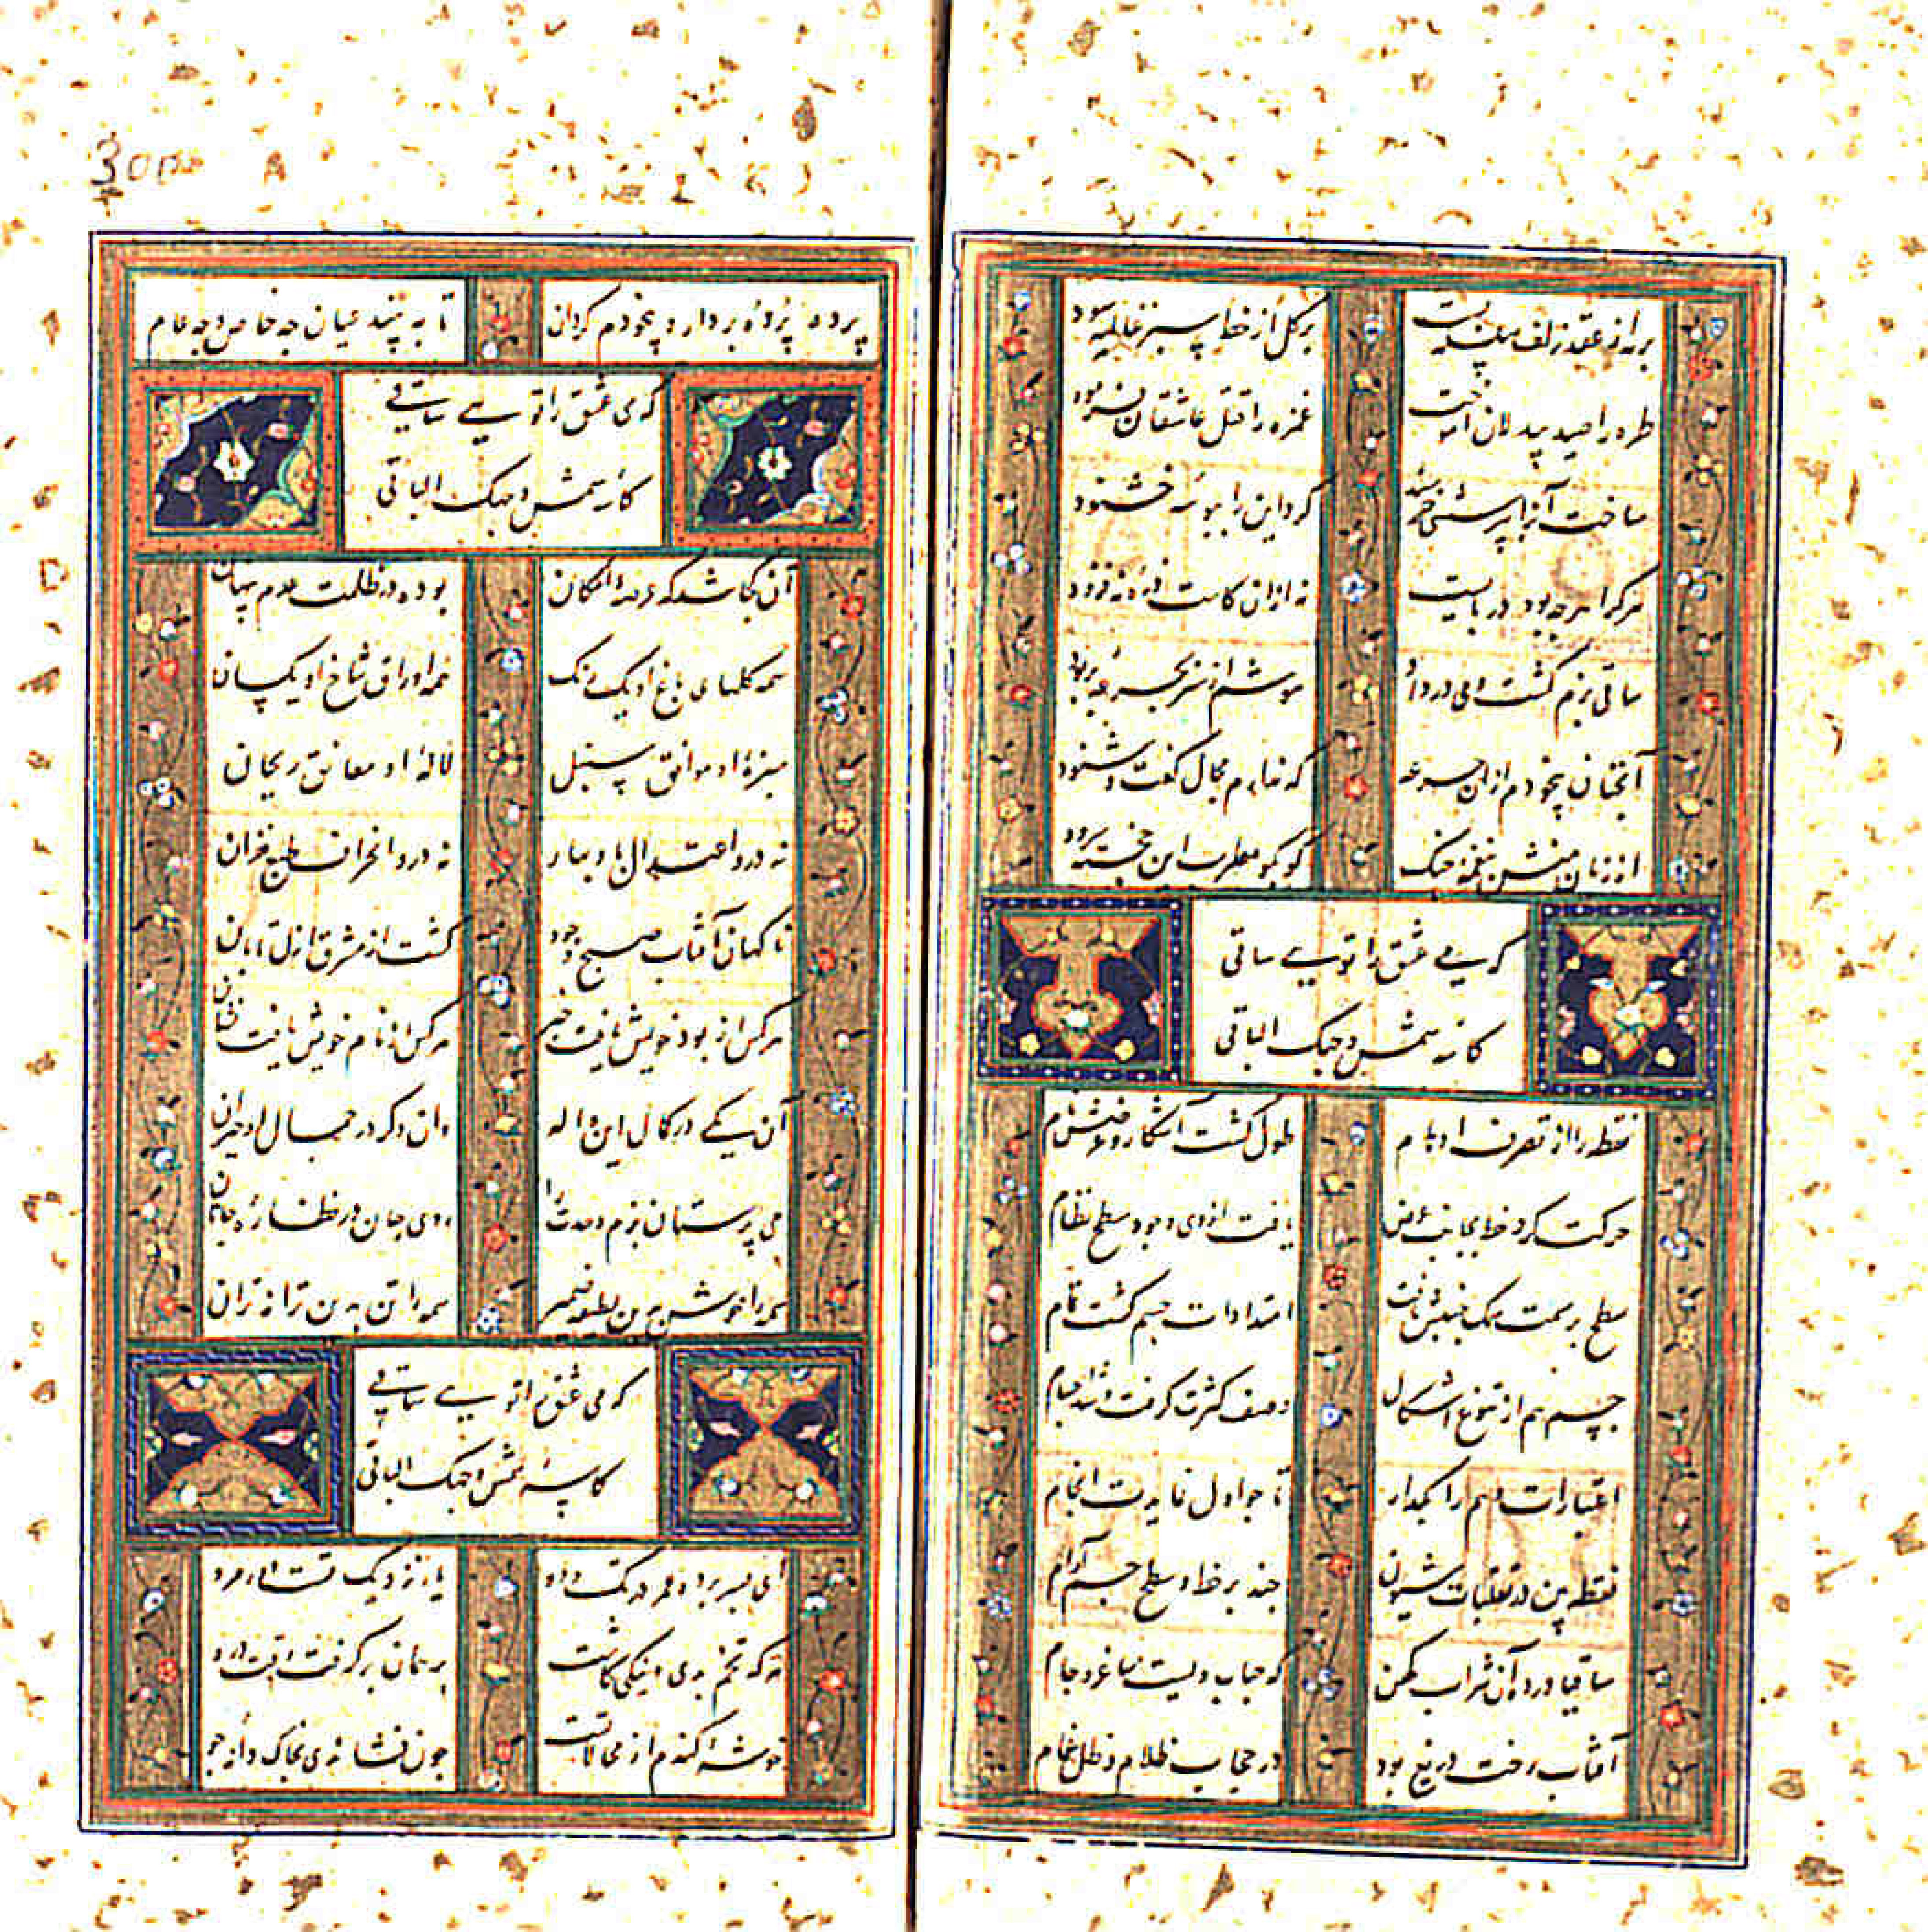 بر مه از عقد زلف سلسله بست بر گل از خط سبز غالیه سود
طره را صید بیدلان آموخت غمزه را قتل عاشقان فرمود
ساخت آنرا بپرسشی خرسند کرد این را ببوسه خشنود
هر کرا هر چه بود در بایست نه ازان کاست ذره نه فزود
ساقی بزم گشت و در داد هوشم از سر بجرعه بربود
آنچنان بیخودم ازان جرعه که ندارم مجال گفت و شنود
از زبان منش بنغمه چنگ گو بگو مطرب این خجسته سرود
که می عشق را تویی ساقی
کاسه شمس وجهک الباقی
نقطه را از تصرف اوهام طول گشت آشکار و خطش نام
حرکت کرد خط بجانب عرض یافت از وی وجود سطح نظام
سطح بر سمت سمک جنبش یافت امتدادات جسم گشت تمام
جسم هم از تنوع اشکال وصف کثرت گرفت و شد اجسام
اعتبارات وهم را بگذار تا چو اول نمایدت انجام
نقطه بین در تقلبات شئون چند بر خط و سطح و جسم آرام
ساقیا در ده آن شراب کهن که حبابیست ساغر و جام
آفتاب رخت دریغ بود در حجاب ظلام و ظل غمام
پرده پرده بردار و بیخودم گردان تا ببینند عیان چه خاص و چه عام
که می عشق را تویی ساقی
کاسه شمس وجهک الباقی
آن کجا شد که عرصه امکان بوده در ظلمت عدم پنهان
همه گلهای باغ او یک رنگ همه اوراق شاخ او یکسان
سبزه او موافق سنبل لاله او معانق ریحان
نه درو اعتدال باد بهار نه درو انحراف طبع خزان
ناگهان آفتاب صبح وجود گشت از مشرق ازل تابان
هر کس از بود خویش یافت خبر هر کس از نام خویش یافت نشان
آن یکی در کمال این واله وان دگر در جمال او حیران
می پرستان بزم وحدت را روی جان در نظاره جانان
همه را خوش بدین ضمیر همه را تن بدین ترانه زبان
که می عشق را تویی ساقی
کاسه شمس وجهک الباقی
ای بسر برده عمر در تک و دو یار نزدیک تست دور مرو
هر که تخم بدی و نیکی کاشت بر همان بر گرفت وقت درو
خوشه گندم از محالاتست چون فشاندی بخاک دانه جو